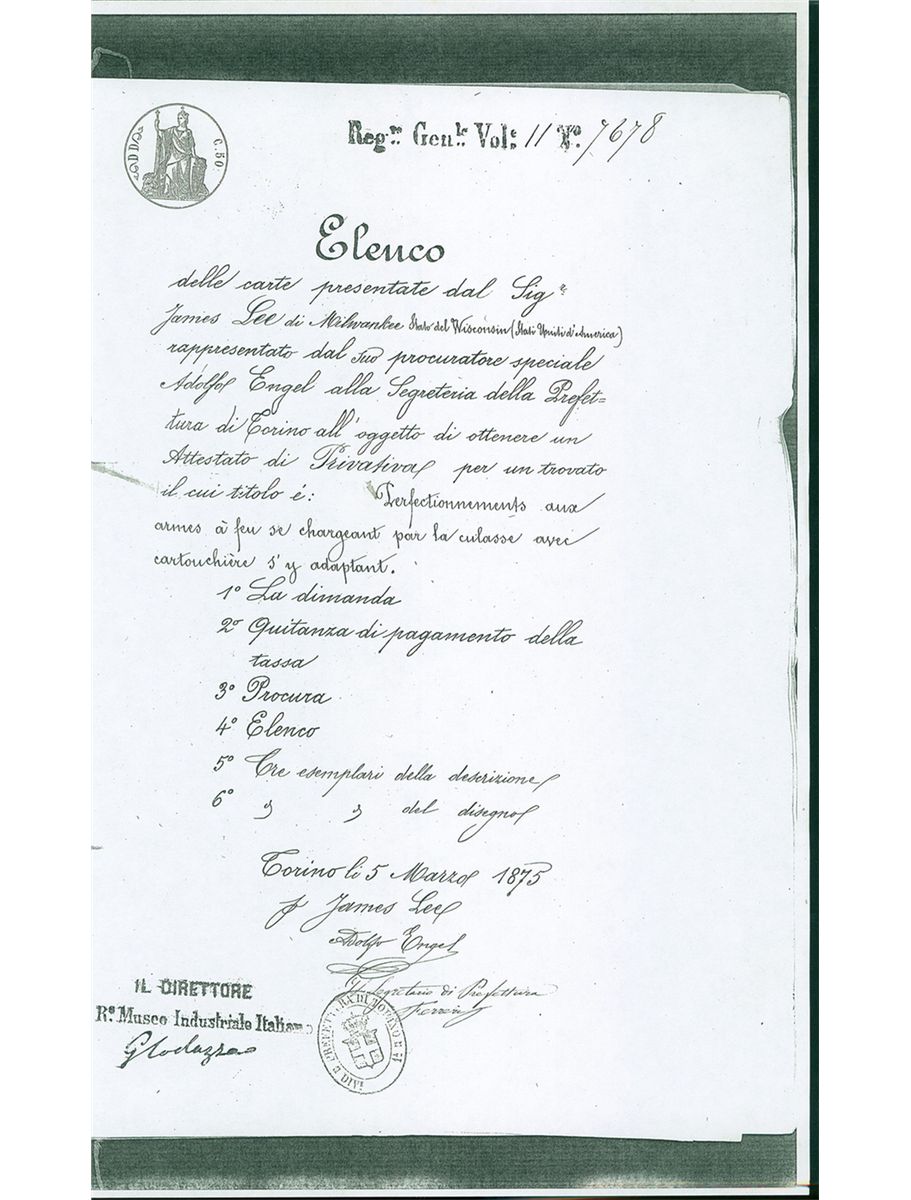 C. 50.
Reg.re Gen.le Vol: 11 N.o 7678
Elenco
delle carte presentate dal Sig.r
James Lee di Milwankee Stato del Wisconsin (Stati Uniti d'America)
rappresentato dal suo procuratore speciale
Adolfo Engel alla Segreteria della Prefet=
tura di Torino all'oggetto di ottenere un
Attestato di Privativa per un trovato
il cui titolo é: Perfectionnements aux
armes à feu se chargeant par la culasse avec
cartouchière s'y adaptant.
1° La dimanda
2° Quitanza di pagamento della
tassa
3° Procura
4° Elenco
5° Tre esemplari della descrizione
6° " " del disegno
Torino li 5 Marzo 1875
p James Lee
Adolfo Engel
Il Segretario di Prefettura
IL DIRETTORE
R.o Museo Industriale Italiano
PREFETTURA DI TORINO